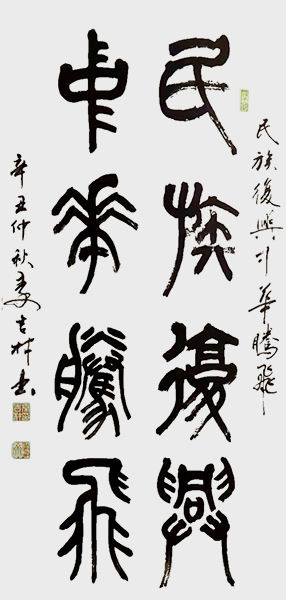 民族復興中華騰飛
民族復興
中華騰飛
辛丑仲秋姜吉林书